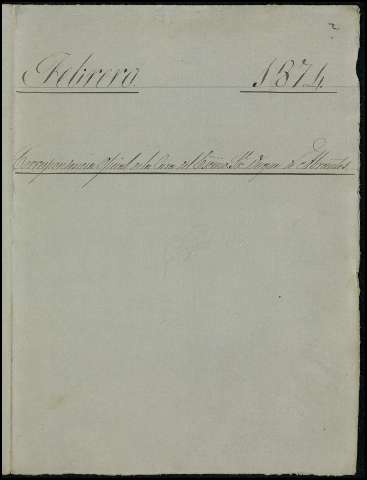 Febrero 1874
Correspondencia oficial de la Casa del Excmo. Sr. Duque de Abrantes